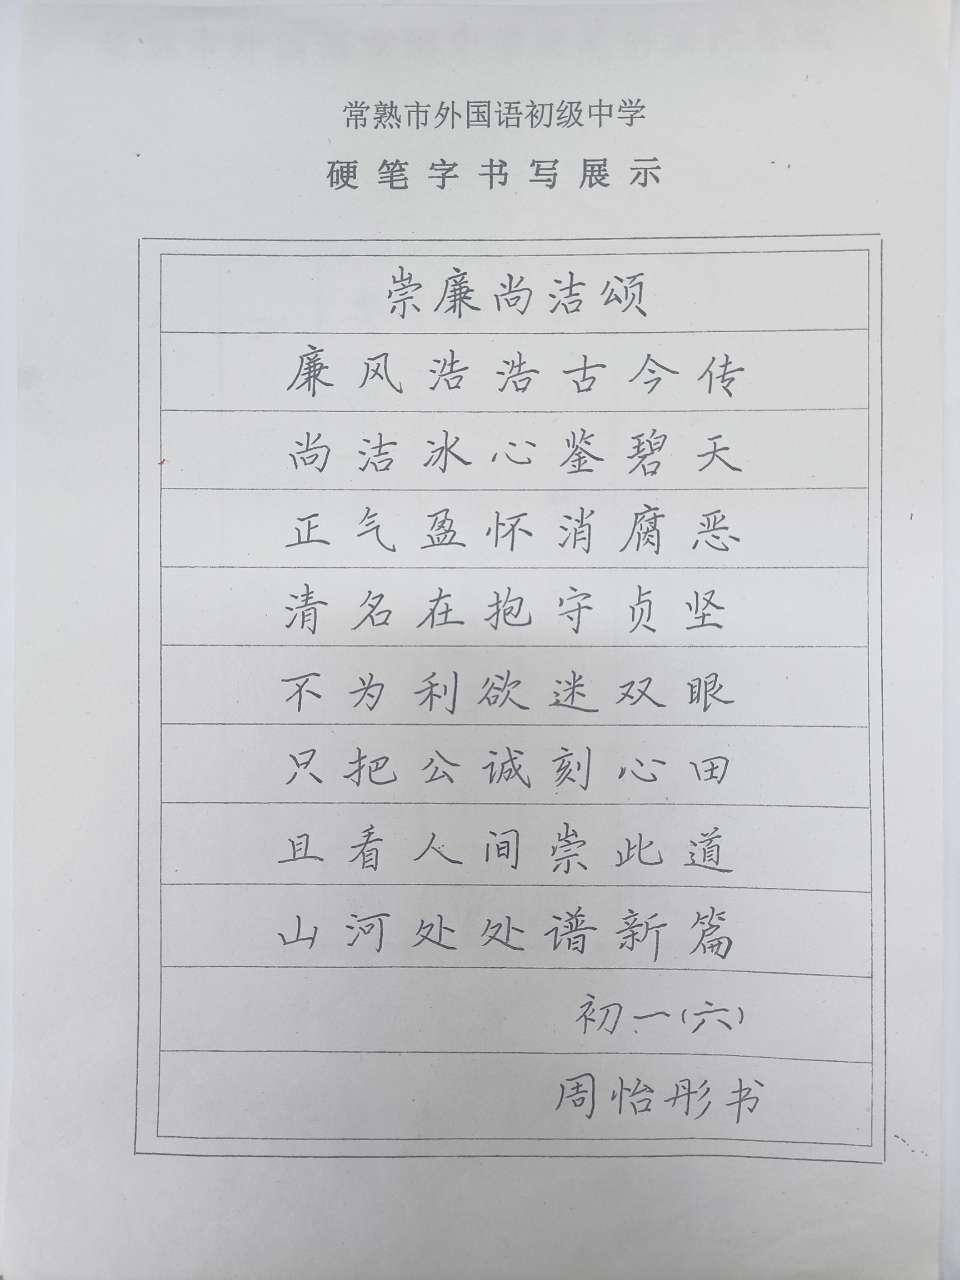 常熟市外国语初级中学
硬笔字书写展示
崇廉尚洁颂
廉风浩浩古今传
尚洁冰心鉴碧天
正气盈怀消腐恶
清名在抱守贞坚
不为利欲迷双眼
只把公诚刻心田
且看人间崇此道
山河处处谱新篇
初一(六)
周怡彤书